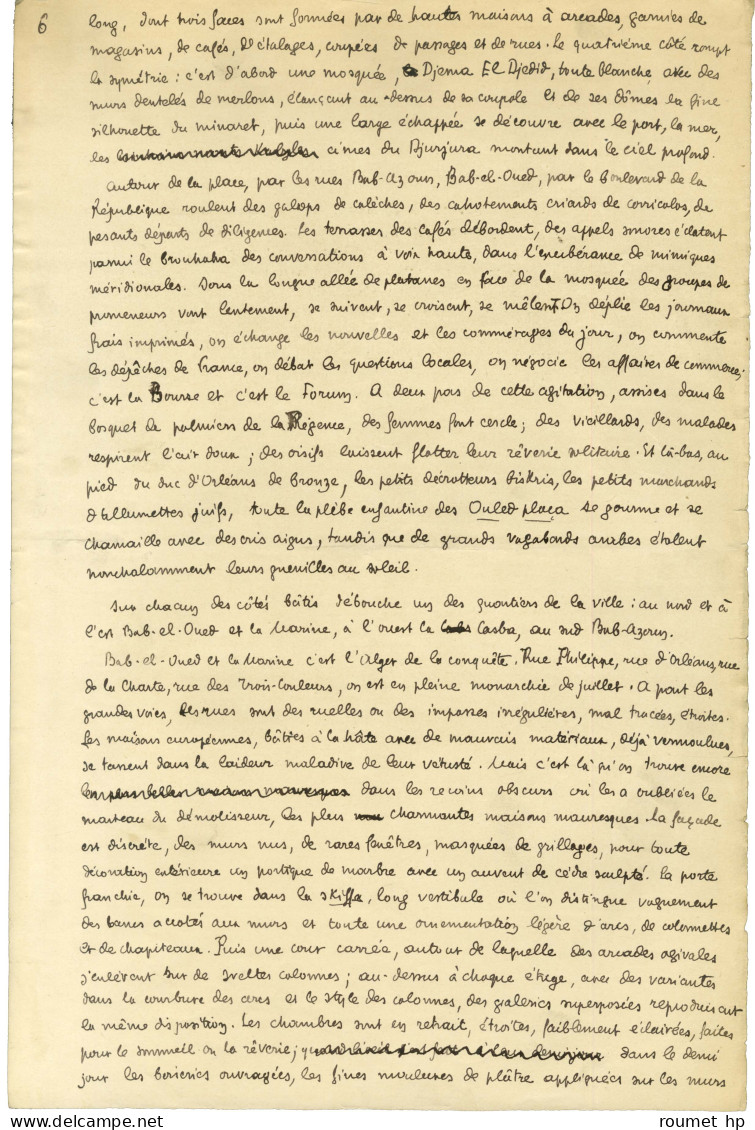 6
long, dont trois faces sont formées par de hautes maisons à arcades, garnies de
magasins, de cafés, d'étalages, coupées de passages et de rues. Le quatrième côté rompt
la symétrie : c'est d'abord une mosquée, la Djema El Djedid, toute blanche, avec des
murs dentelés de merlons, élançant au-dessus de sa coupole et de ses dômes la fine
silhouette du minaret, puis une large échappée se découvre avec le port, la mer,
les cimes du Djurjura montant dans le ciel profond.
Autour de la place, par les rues Bab-Azoun, Bab-el-Oued, par le boulevard de la
République roulent des galops de calèches, des cahotements criards de corricolos, de
pesants départs de diligences. Les terrasses des cafés débordent, des appels sonores éclatent
parmi le brouhaha des conversations à voix haute, dans l'exubérance de mimiques
méridionales. Sous la longue allée de platanes en face de la mosquée des groupes de
promeneurs vont lentement, se suivent, se croisent, se mêlent. On déplie les journaux
frais imprimés, on échange les nouvelles et les commérages du jour, on commente
les dépêches de France, on débat les questions locales, on négocie les affaires de commerce ;
c'est la Bourse et c'est le Forum. A deux pas de cette agitation, assises dans le
bosquet de palmiers de la Régence, des femmes font cercle ; des vieillards, des malades
respirent l'air doux ; des oisifs laissent flotter leur rêverie solitaire. Et là-bas, au
pied du duc d'Orléans de bronze, les petits décrotteurs biskris, les petits marchands
d'allumettes juifs, toute la plèbe enfantine des Ouled plaça se gourme et se
chamaille avec des cris aigus, tandis que de grands vagabonds arabes étalent
nonchalamment leurs guenilles au soleil.
Sur chacun des côtés bâtis débouche un des quartiers de la ville : au nord et à
l'est Bab-el-Oued et la Marine, à l'ouest la Casba, au sud Bab-Azoun.
Bab-el-Oued et la Marine c'est l'Alger de la conquête. Rue Philippe, rue d'Orléans, rue
de la Charte, rue des Trois-Couleurs, on est en pleine monarchie de juillet. A part les
grandes voies, les rues sont des ruelles ou des impasses irrégulières, mal tracées, étroites.
Les maisons européennes, bâties à la hâte avec de mauvais matériaux, déjà vermoulues,
se tassent dans la laideur maladive de leur vétusté. Mais c'est là qu'on trouve encore
dans les recoins obscurs où les a oubliées le
marteau du démolisseur, les plus charmantes maisons mauresques. La façade
est discrète, des murs nus, de rares fenêtres, masquées de grillages, pour toute
décoration extérieure un portique de marbre avec un auvent de cèdre sculpté. La porte
franchie, on se trouve dans la skiffa, long vestibule où l'on distingue vaguement
des bancs accotés aux murs et toute une ornementation légère d'arcs, de colonnettes
et de chapiteaux. Puis une cour carrée, autour de laquelle des arcades ogivales
s'enlèvent sur de sveltes colonnes ; au-dessus à chaque étage, avec des variantes
dans la courbure des arcs et le style des colonnes, des galeries superposées reproduisent
la même disposition. Les chambres sont en retrait, étroites, faiblement éclairées, faites
pour le sommeil ou la rêverie ; dans le demi
jour les boiseries ouvragées, les fines moulures de plâtre appliquées sur les murs
roumet hp